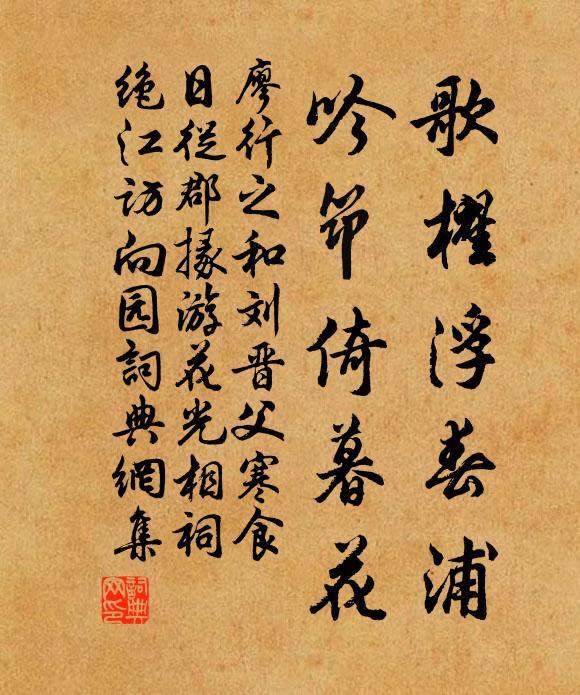 歌櫂浮春浦
吟筇倚暮花
廖行之和刘晋父寒食
日從郡掾游花光相祠
绝江访向园詞典網集
詞典
网印